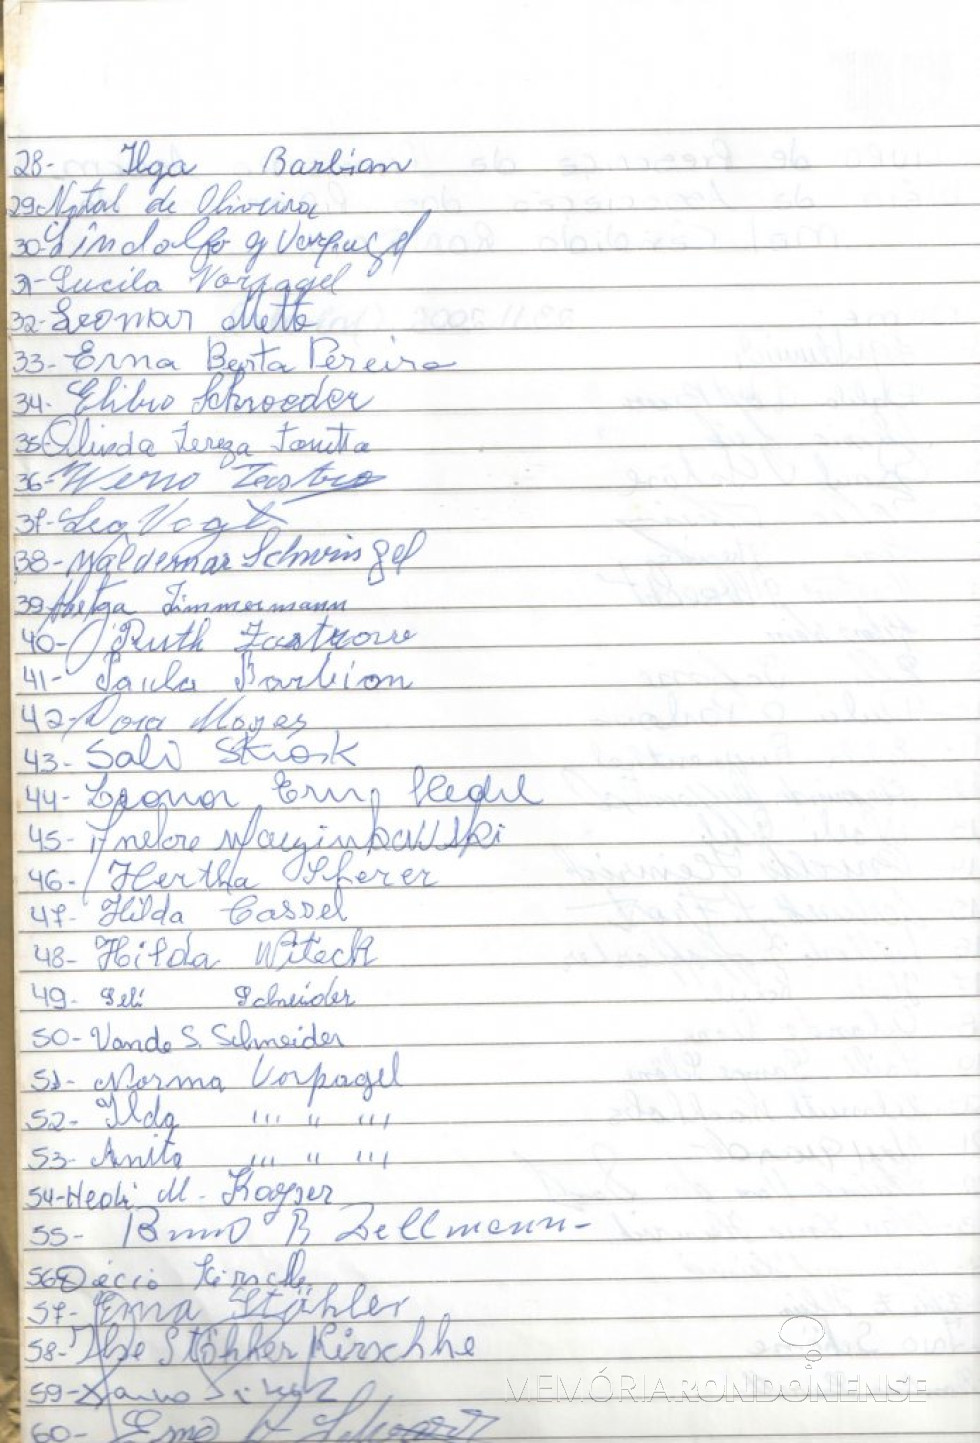 28- Ilga Barbian
29- Natal de Oliveira
30- Lindolfo g Vorpagel
31- Lucila Vorpagel
32- Leomar Metto
33- Erna Berta Pereira
34- Elibio Schroeder
35- Olinda Tereza
36- Werno Zastro
37- Leo Vogt
38- Waldemar Schwingel
39- Helga Zimmermann
40- Ruth Zastrow
41- Paula Barbian
42- Dora
43- Sali
44- Leonor Erna
45-
46- Hertha Scherer
47- Hilda Cassel
48- Hilda Witeck
49- Seli Schneider
50- Vanda S. Schneider
51- Norma Vorpagel
52- Ilda ''' '' '''
53- Anita ''' '' '''
54- Hedi M. Kayser
55- Bruno B Dellmann-
56- Décio Kirsch
57- Erna Stöhler
58- Ilse Stöhler Kirschhe
59-
60-
MEMÓRIA RONDONENSE